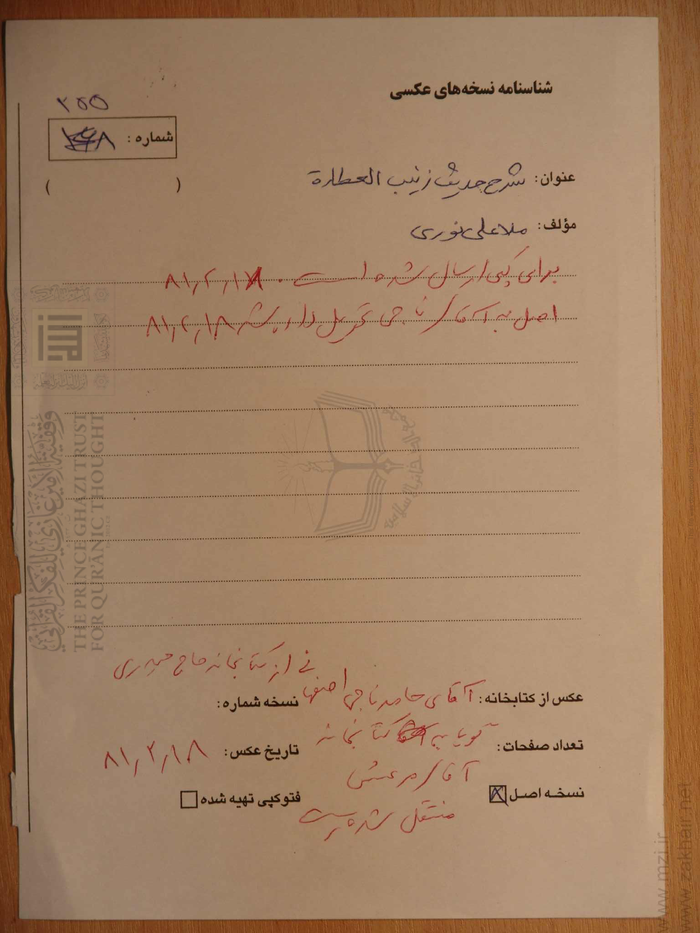 شناسنامه نسخه‌های عکسی
۲۵۵
شماره :
( )
عنوان: شرح حدیث زینب العطارة
مؤلف: ملاعلی نوری
برای کپی ارسال شده است . ۸۱٫۲٫۱۷
اصل به آقای ناجی تحویل داده شد ۸۱٫۲٫۱۸
وقفية الأمير غازي للفكر القرآني
THE PRINCE GHAZI TRUST
FOR QUR'ĀNIC THOUGHT
از کتابخانه حاج حیدری
عکس از کتابخانه: آقای حامد ناجی اصفهانی
نسخه شماره:
تعداد صفحات: گویا به کتابخانه
تاریخ عکس: ۸۱٫۲٫۱۸
آقای مرعشی
نسخه اصل
فتوکپی تهیه شده
منتقل شده است
www.mzi.ir
www.zakhair.net